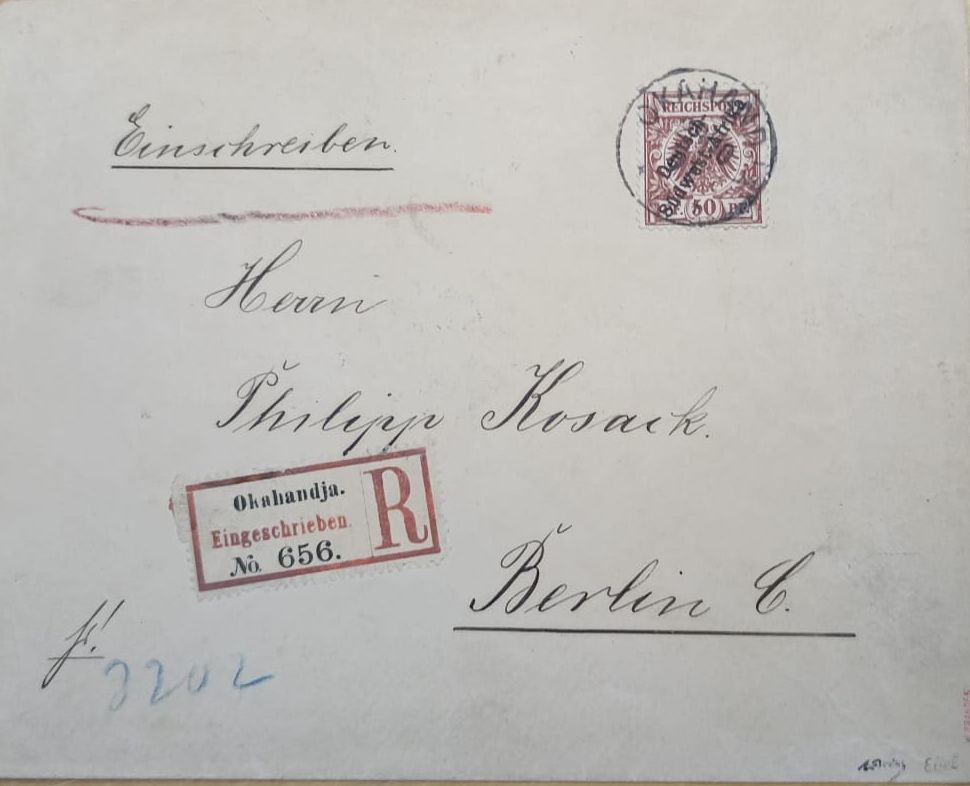 Einschreiben.
OKAHAND
REICHSPOST
Deutsch-
Südwest-Afrika
PF. 50 PF.
Herrn
Philipp Kosack.
Okahandja.
Eingeschrieben.
No. 656.
R
Berlin C.
fr!
3202